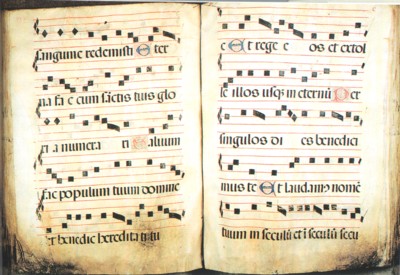 sanguine redemisti Eter
na fa c cum sãctis tuis glo
ri a numera ri Saluum
fac populum tuum domine
et benedic heredita ti tu
e Et rege e os et extol
le illos usq; in eternũ Per
singulos di es benedici
mus te Et laudam nomẽ
tuum in seculũ et ĩ seculũ secu